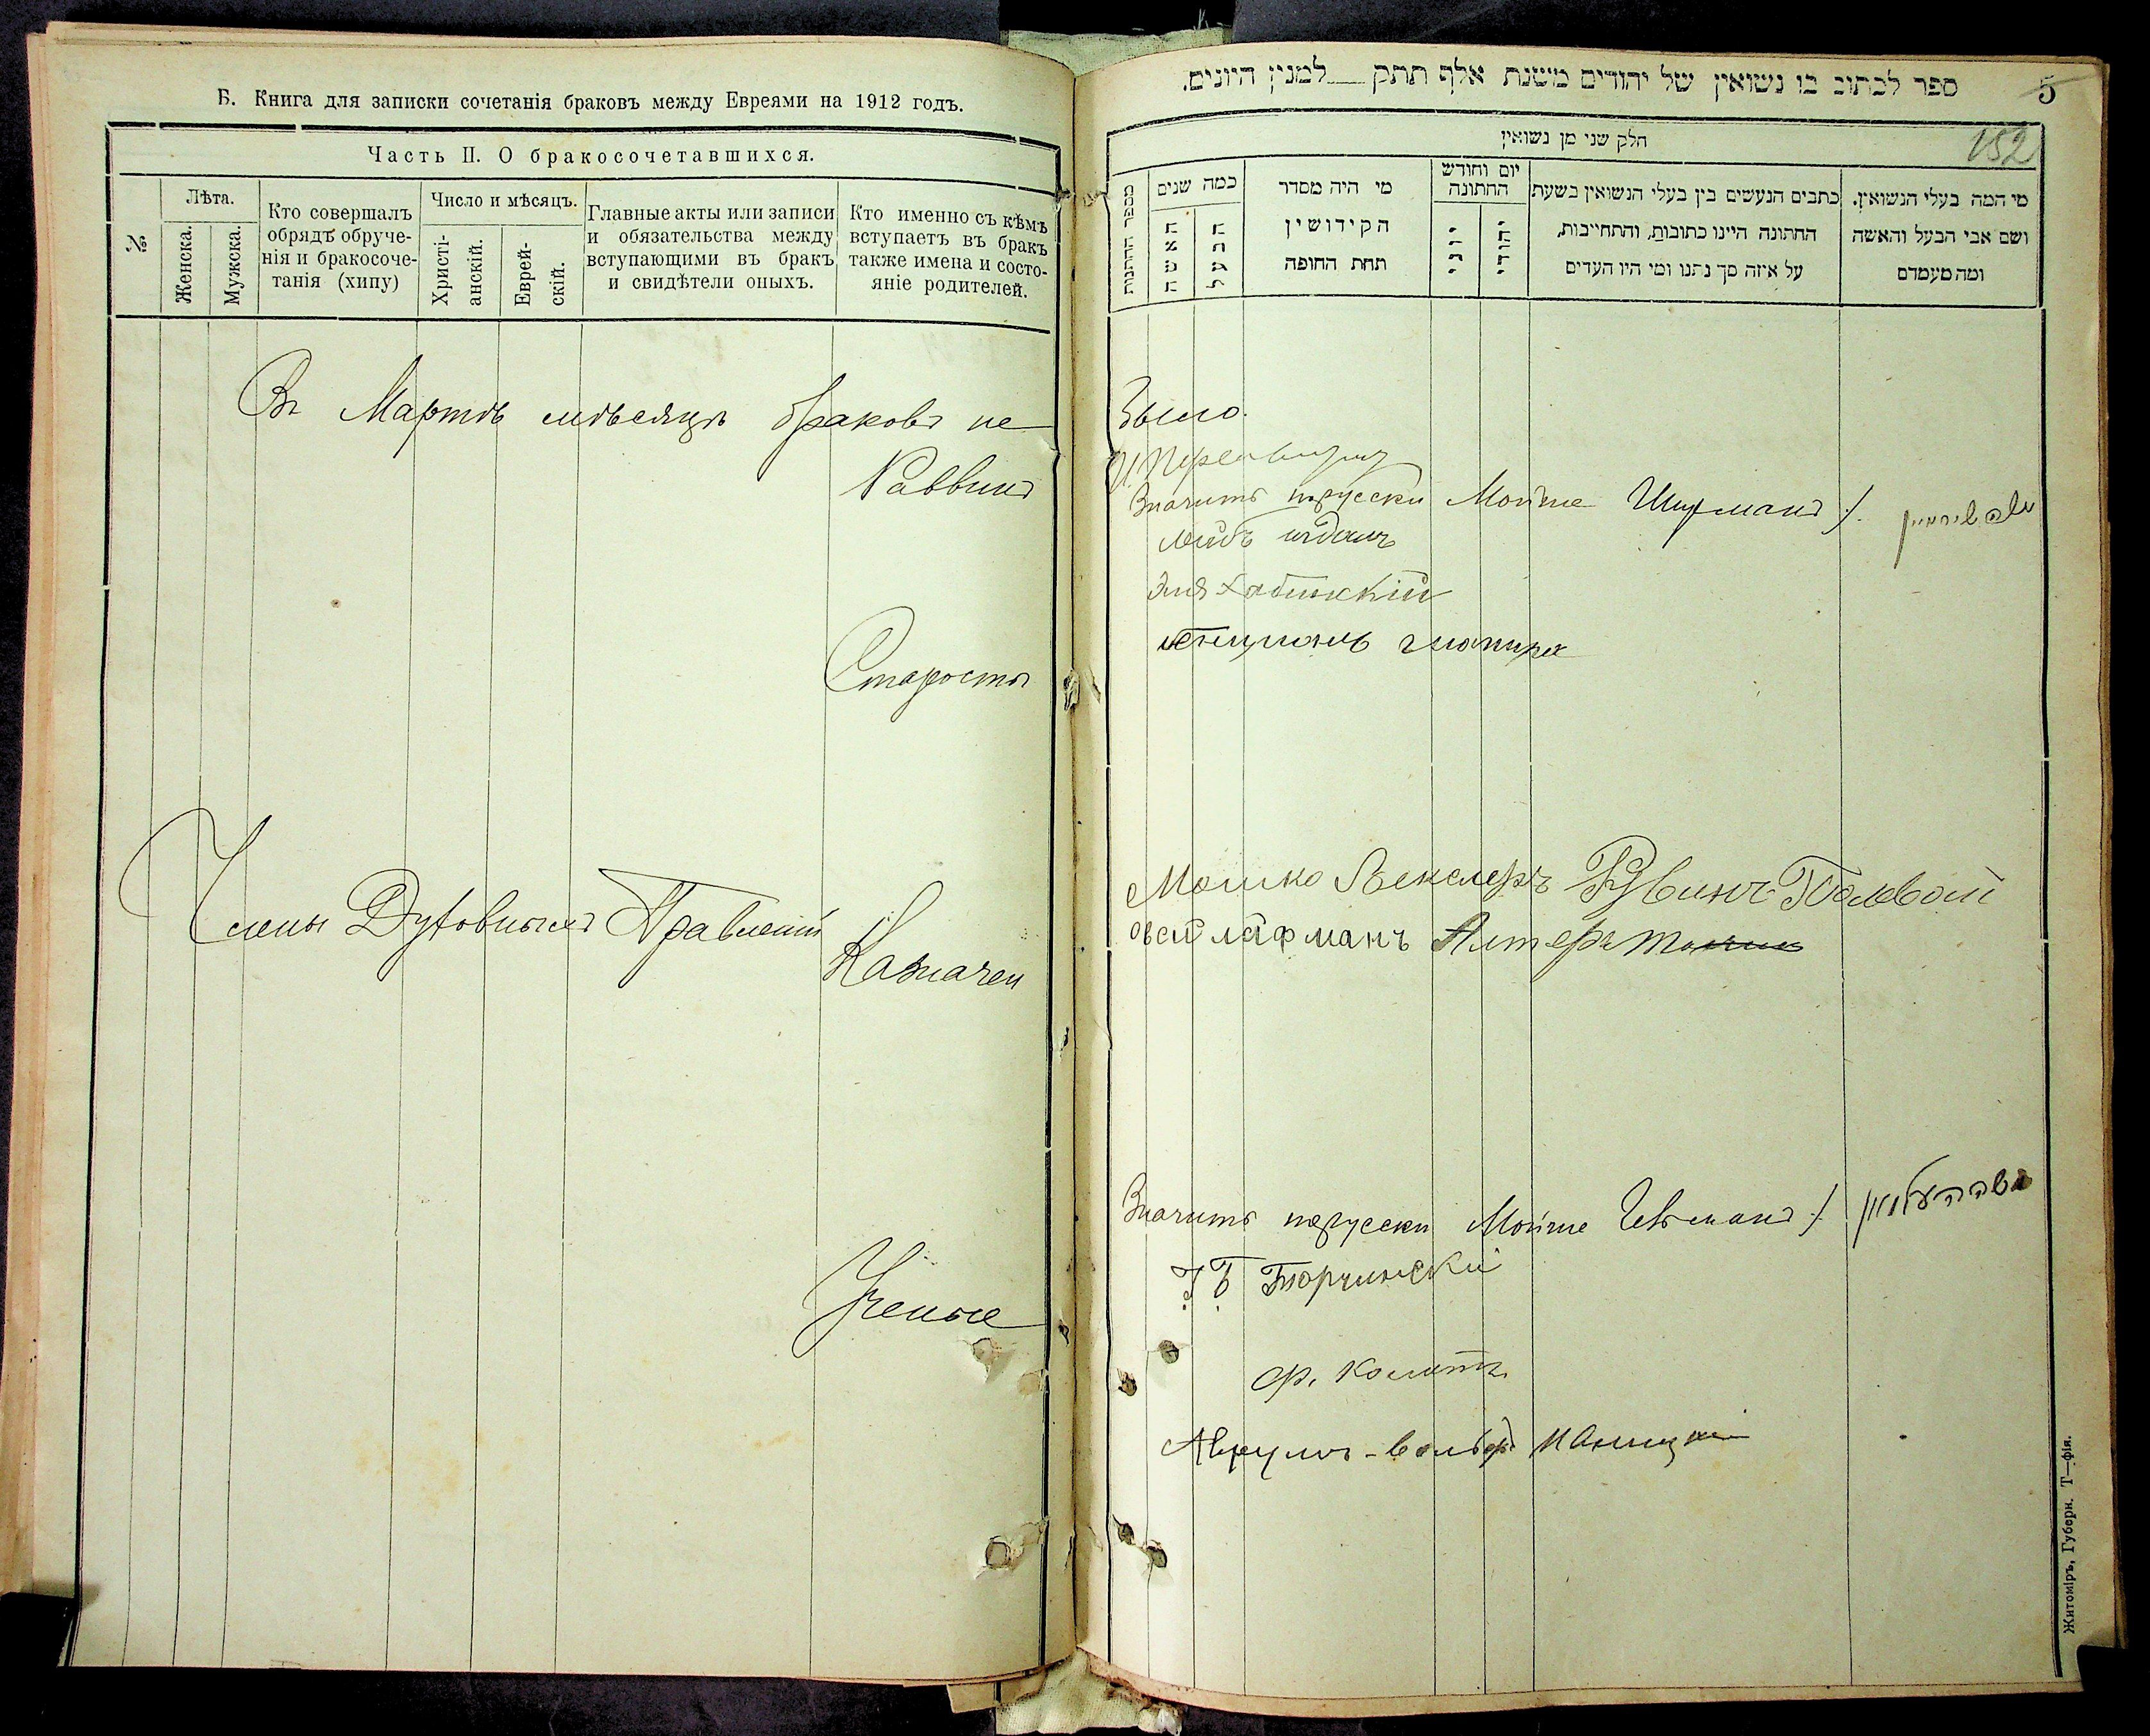 Б. Книга для записки сочетанія браковъ между Евреями на 1912 годъ.
Часть II. О бракосочетавшихся.
№
Лѣта.
Женска.
Мужска.
Кто совершалъ
обрядъ обруче-
нія и бракосоче-
танія (хипу)
Число и мѣсяцъ.
Христі-
анскій.
Еврей-
скій.
Главные акты или записи
и обязательства между
вступающими въ бракъ
и свидѣтели оныхъ.
Кто именно съ кѣмъ
вступаетъ въ бракъ
также имена и состо-
яніе родителей.
Въ Мартѣ мѣсяцѣ браковъ не
Раввинъ
Старосты
Члены Духовныхъ Правленій
Казначеи
Ученые
ספר לכתוב בו נשואין של יהודים משנת אלף תתק למנין היונים.
5
152
חלק שני מן נשואין
מספר החתנות
כמה שנים
האשה
הבעל
מי היה מסדר
הקידושין
תחת החופה
יום וחודש
החתונה
יוני
יהודי
כתבים הנעשים בין בעלי הנשואין בשעת
החתונה היינו כתובות, והתחייבות,
על איזה סך נתנו ומי היו העדים
מי המה בעלי הנשואין.
ושם אבי הבעל והאשה
ומה מעמדם
было.
Значитъ порусски Мойше Ширманъ /. משה שירמאן
Эля Хабинскій
Мошко Векслеръ Рувинъ Полевой
Овсей Лафманъ Алтеръ
Значитъ порусски Мойше Гельманъ /. משה העלמאן
Г. Б. Торчинскій
Аврумъ-Вольфъ
Житоміръ, Губерн. Т—фія.